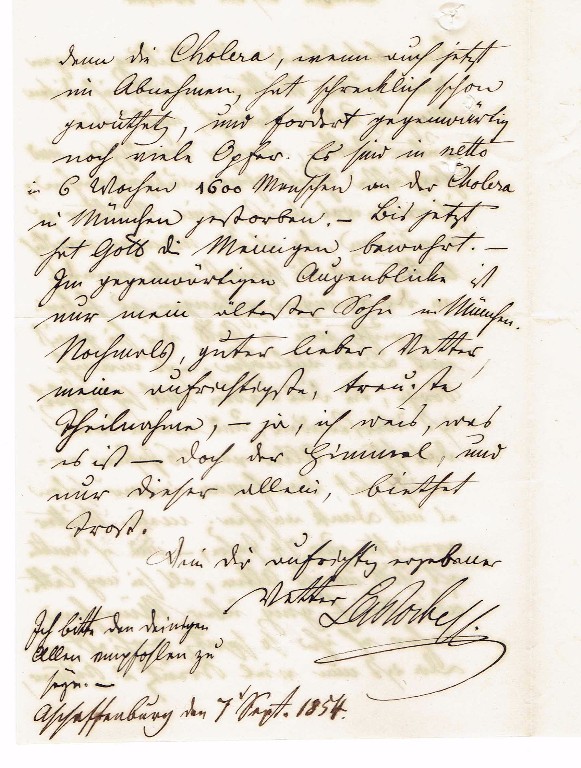 denn die Cholera, wenn auch jetzt
im Abnehmen, hat schrecklich schon
gewüthet, und fordert gegenwärtig
noch viele Opfer. Es sind in netto
in 6 Wochen 1600 Menschen an der Cholera
in München gestorben. – Bis jetzt
hat Gott die Meinigen bewahrt. –
Im gegenwärtigen Augenblicke ist
nur mein ältester Sohn in München.
Nochmals, guter lieber Vetter,
meine aufrichtigste, treueste
Theilnahme, – ja, ich weis, was
es ist – doch der Himmel, und
nur dieser allein, biethet
Trost.
Dein dir aufrichtig ergebener
Vetter LaRoche
Ich bitte den deinigen
Allen empfohlen zu
seyn. –
Aschaffenburg den 7t Sept. 1854.